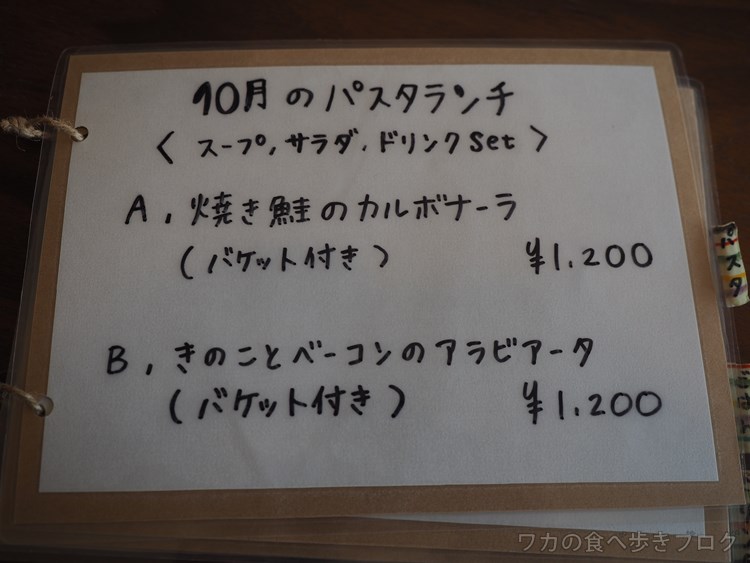 10月のパスタランチ
〈 スープ, サラダ, ドリンク Set 〉
A, 焼き鮭のカルボナーラ
(バケット付き) ¥1.200
B, きのことベーコンのアラビアータ
(バケット付き) ¥1.200
パスタ
ワカの食べ歩きブログ